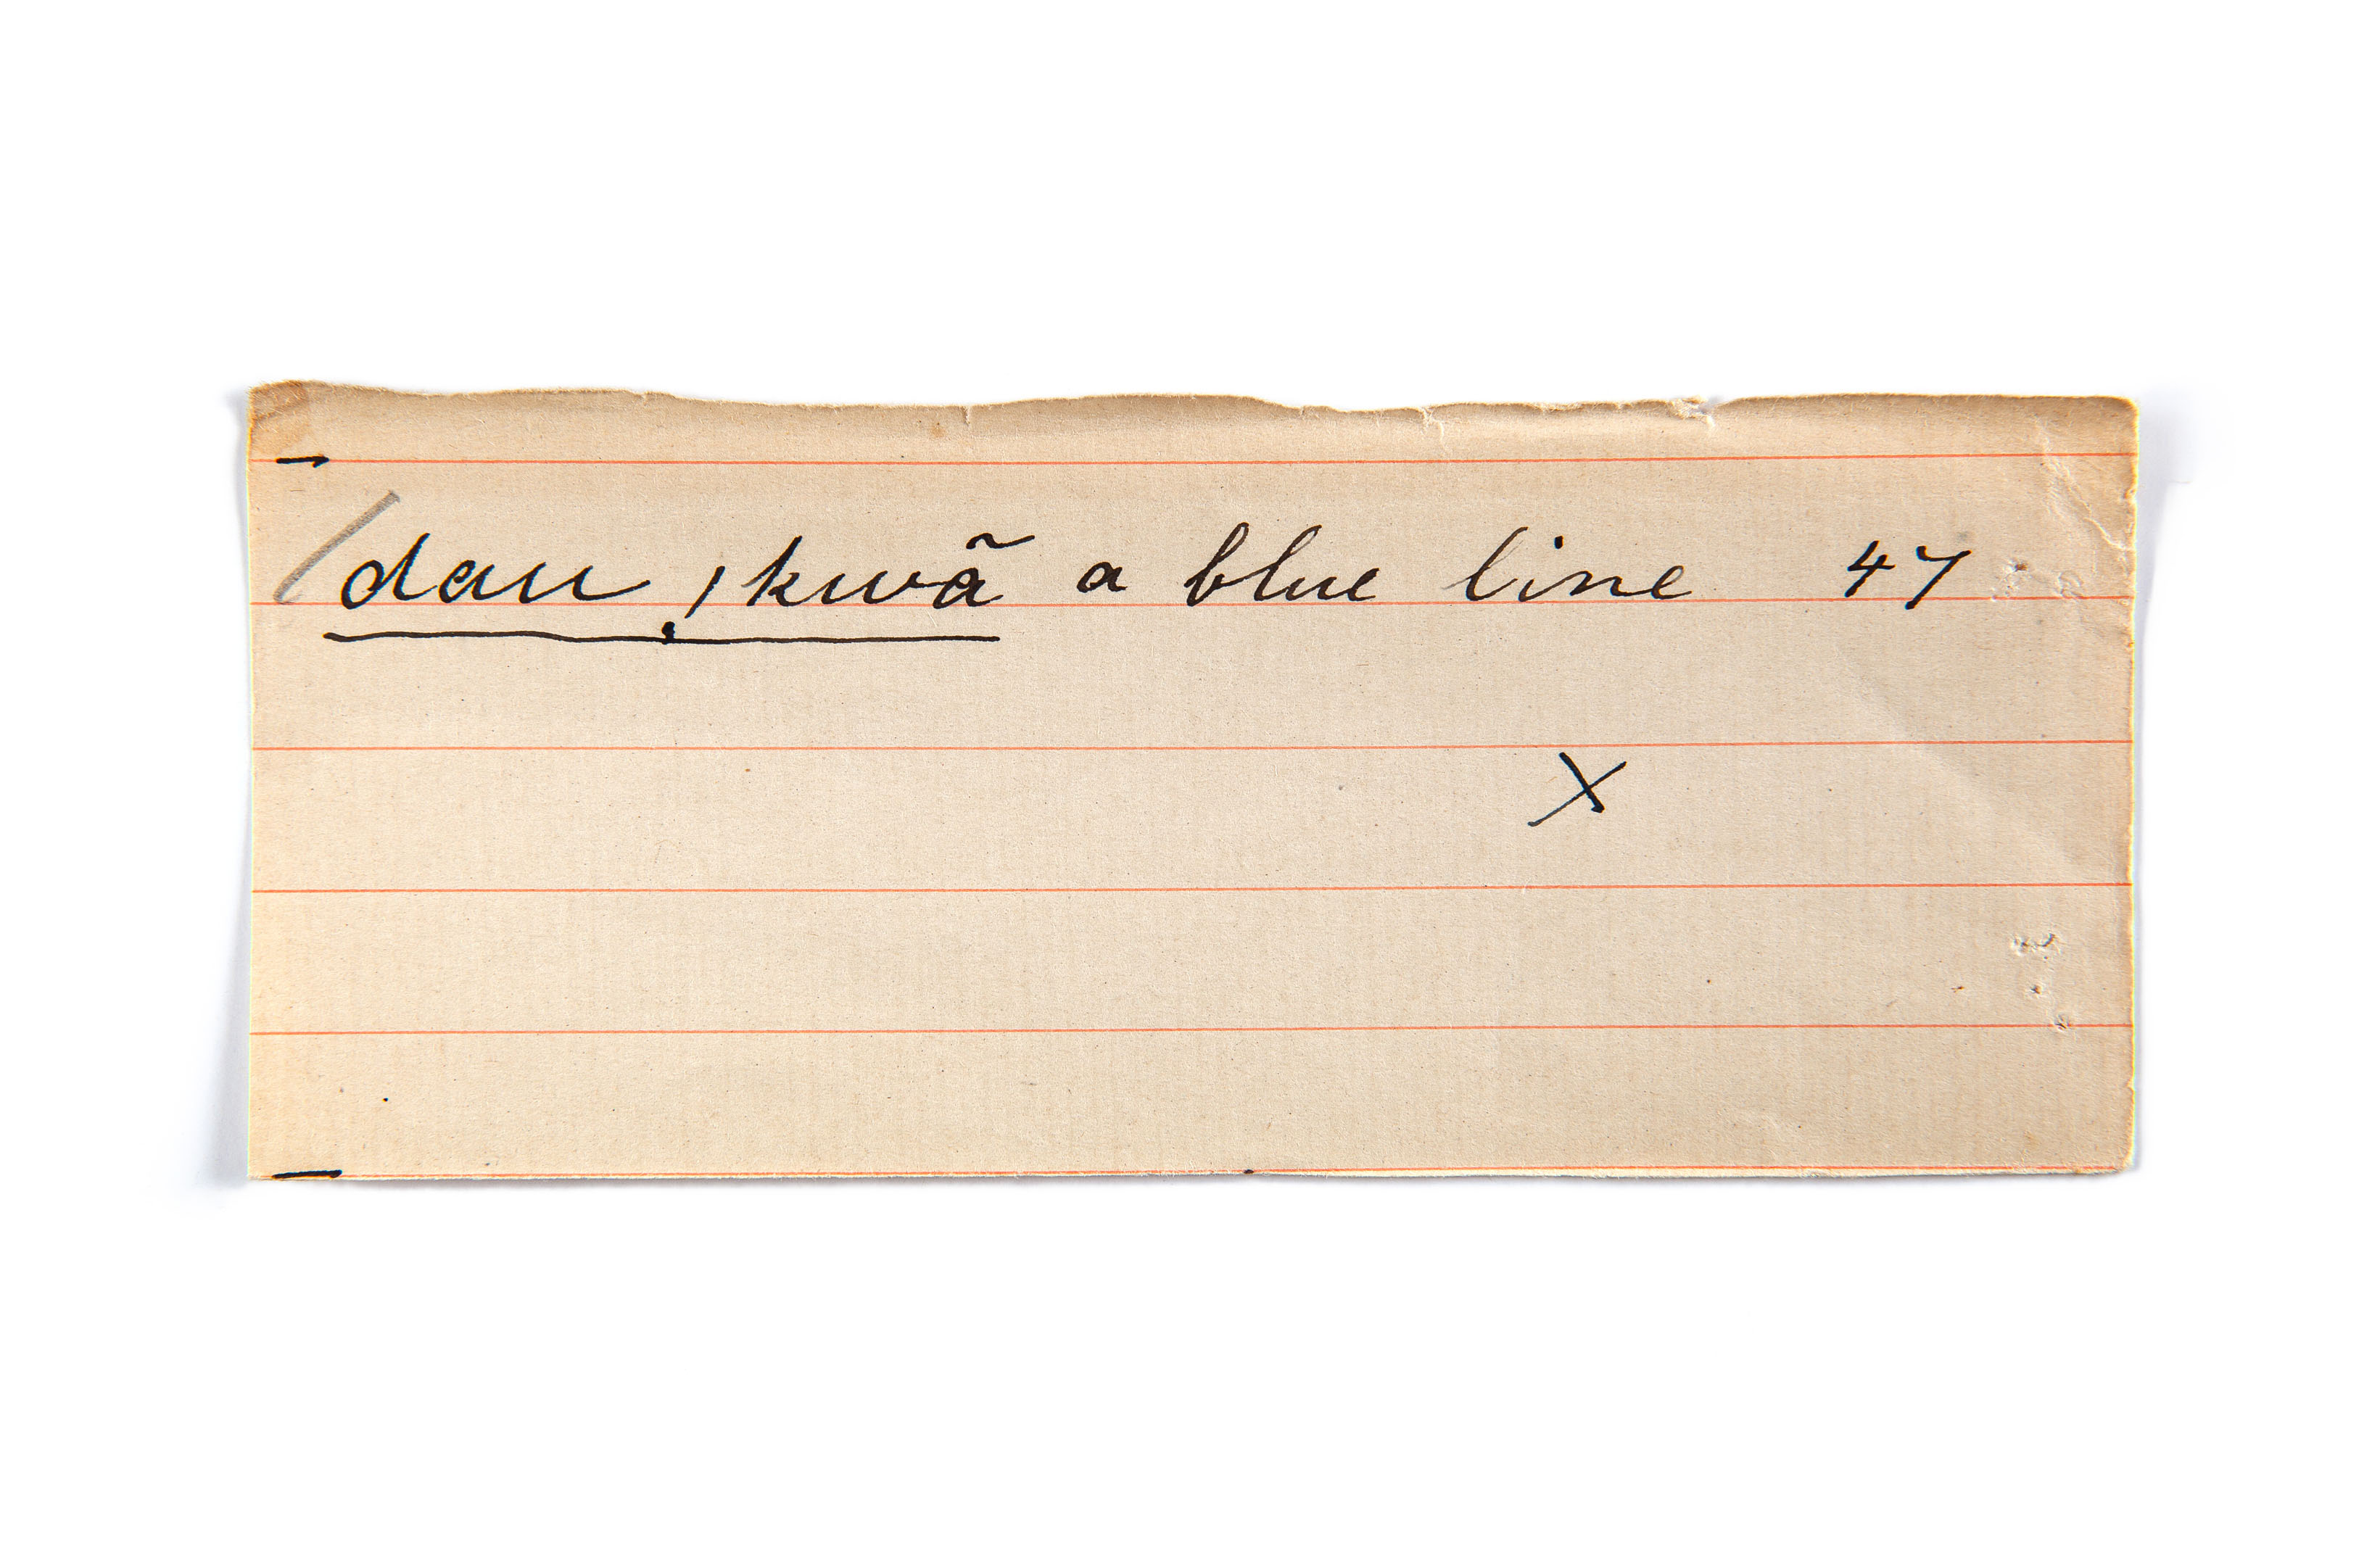 /dau ̣ ˌkwã a blue line 47
X